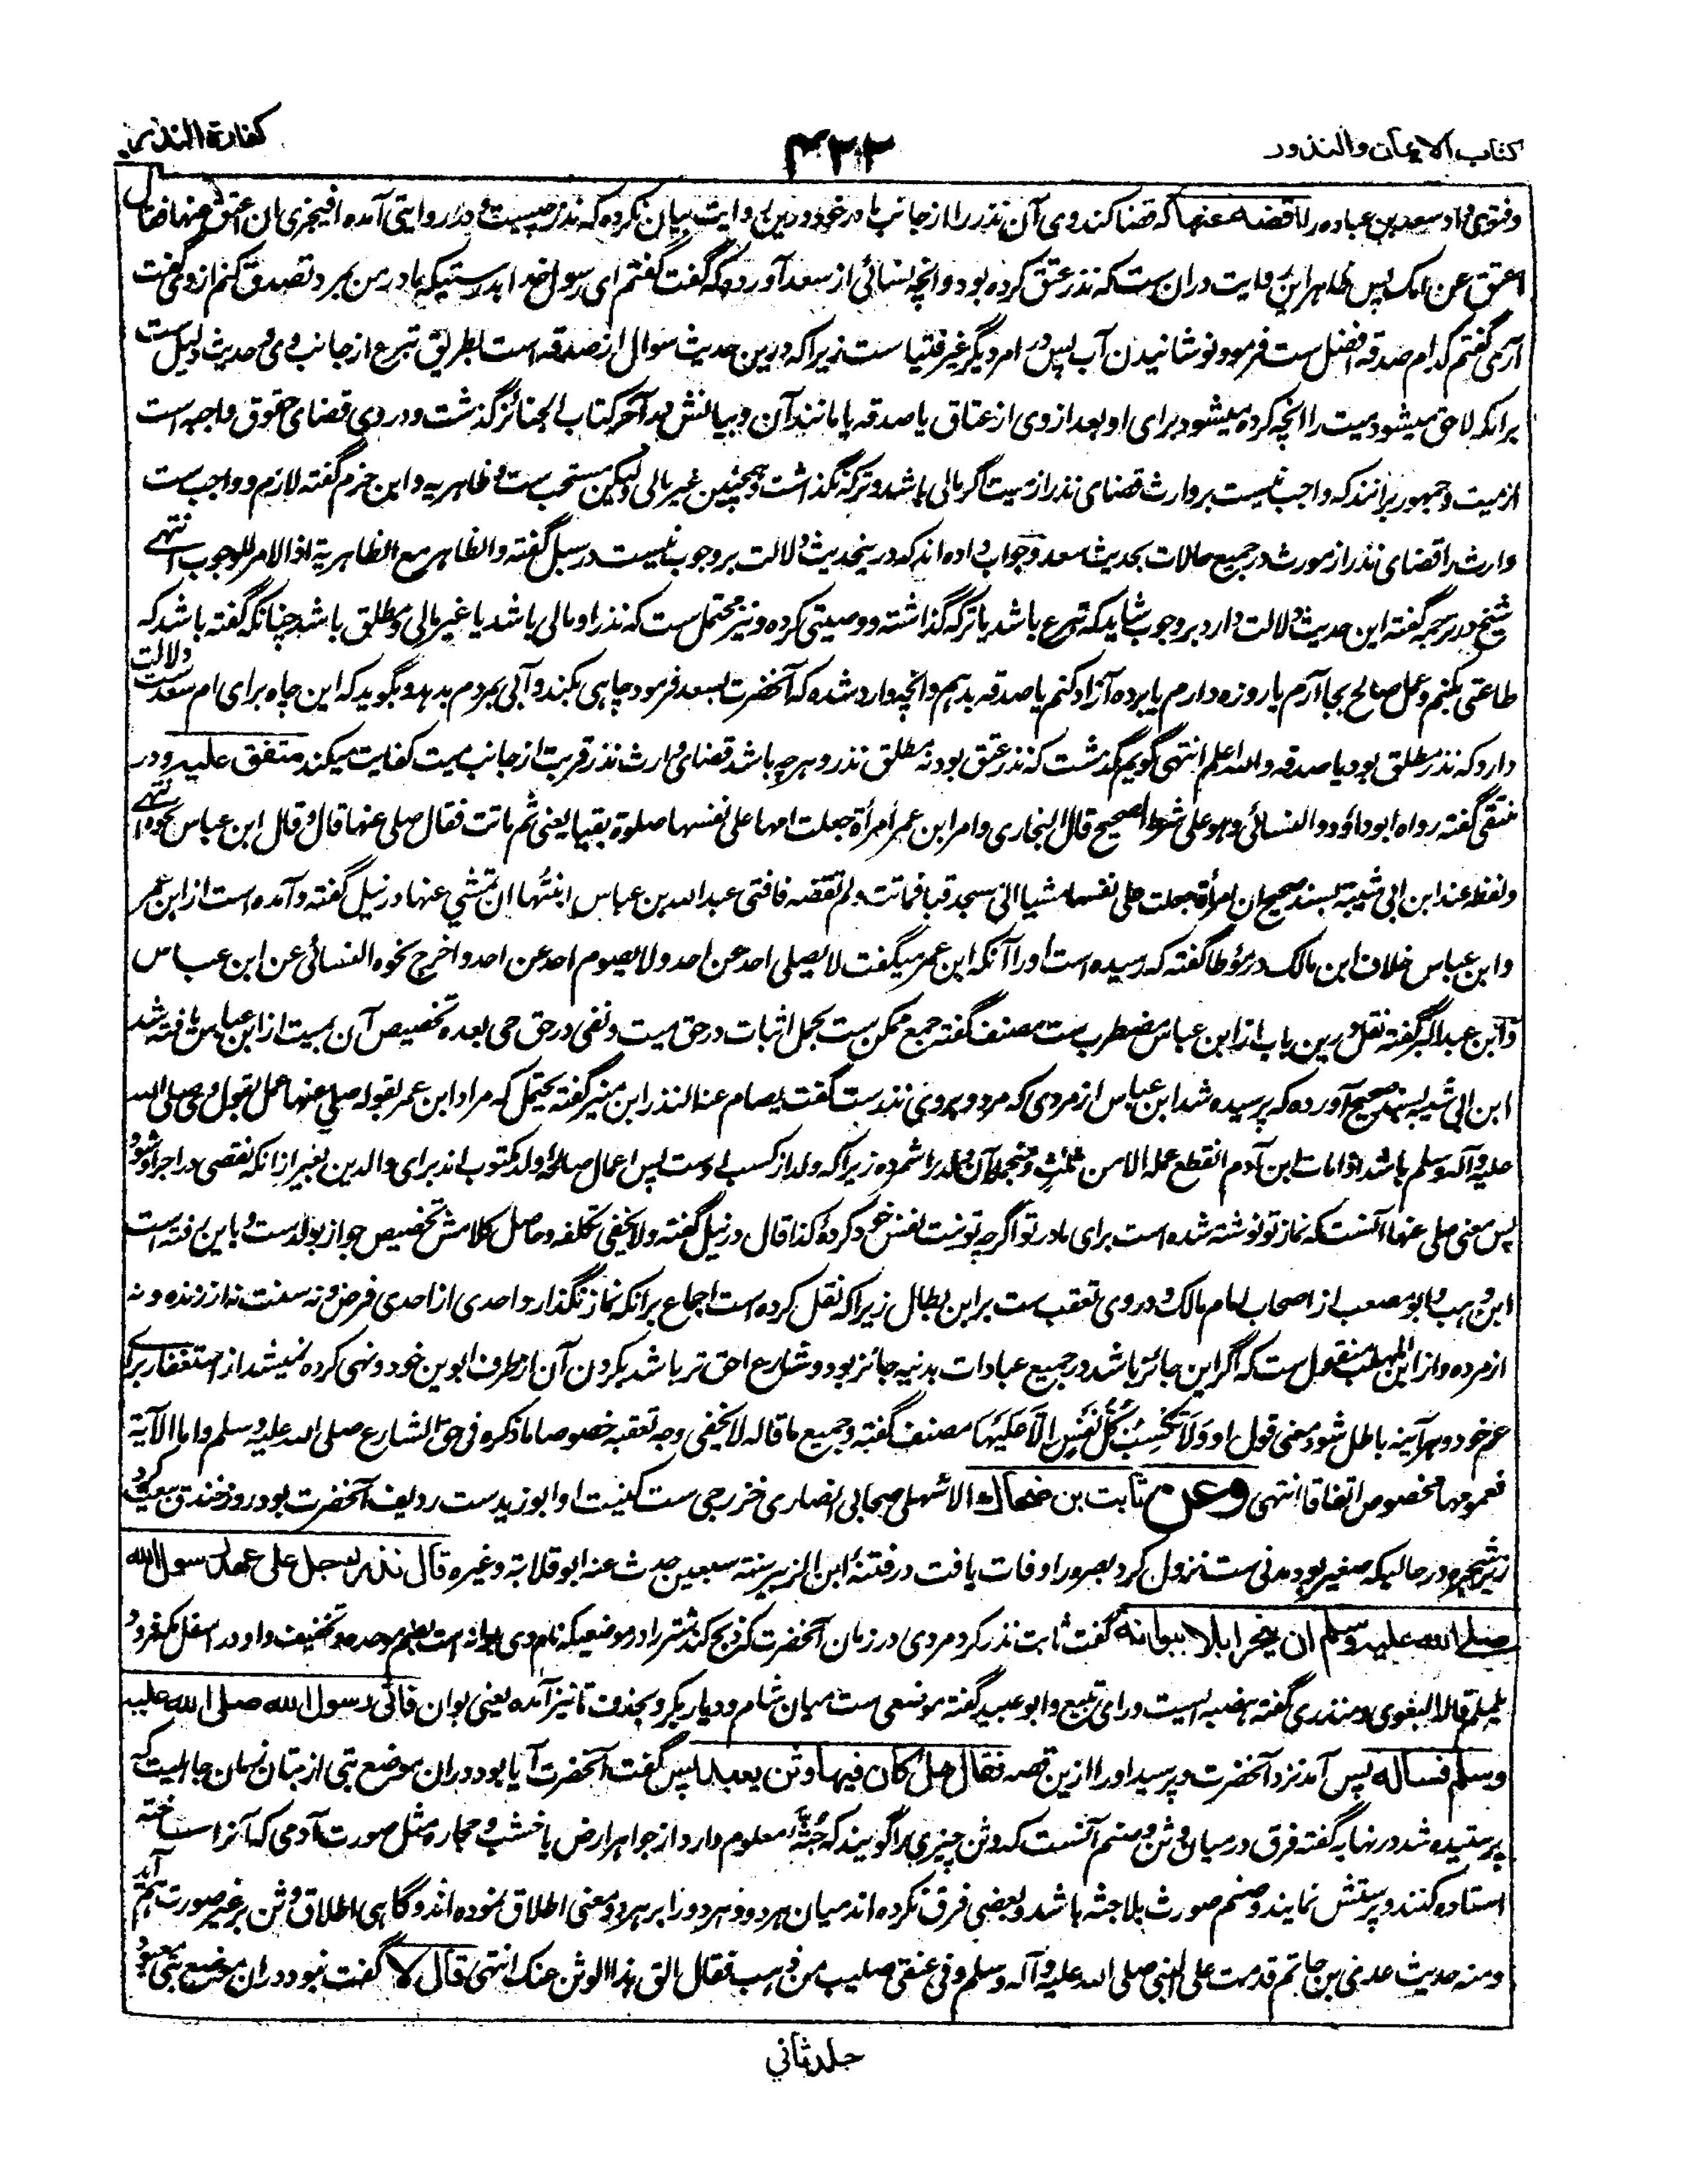 کتاب الایمان والنذور
۴۲۲
کفارة النذر
وفتوی داد سعد بن عباده را اقضه عنها که قضا کند وی آن نذر را از جانب مادر خود و درین روایت بیان نکرده که نذر چیست و در روایتی آمده افیجزی ان اعتق عنها فقال
اعتق عن امک پس ظاهر این روایت دران ست که نذر عتق کرده بود و انچه نسائی از سعد آورده که گفت گفتم ای رسول خدا بدرستیکه مادر من بمرد تصدق کنم از وی گفت
آری گفتم کدام صدقه افضل ست فرمود نوشانیدن آب پس در امر دیگر غیر فتیا ست زیرا که درین حدیث سوال از صدقه است بطریق تبرع از جانب وی و حدیث دلیل ست
برانکه لاحق میشود میت را انچه کرده میشود برای او بعد از وی از عتاق یا صدقه یا مانند آن و بیانش در آخر کتاب الجنائز گذشت و در وی قضای حقوق واجبه است
از میت و جمهور برانند که واجب نیست بر وارث قضای نذر از میت اگر مالی باشد و ترکه نگذاشت و همچنین غیر مالی و لیکن مستحب ست و ظاهریه و ابن حزم گفته لازم و واجب ست
وارث را قضای نذر از مورث در جمیع حالات بحدیث سعد و جواب داده اند که درینحدیث دلالت بر وجوب نیست در سبل گفته و الظاهر مع الظاهریة اذ الامر للوجوب انتهے
شیخ در ترجمه گفته این حدیث دلالت دارد بر وجوب شاید که تبرع باشد یا ترکه گذاشته و وصیتی کرده و نیز محتمل ست که نذر او مالی باشد یا غیر مالی و مطلق باشد چنانکه گفته باشد که
طاعتی بکنم و عمل صالح بجا آرم یا روزه دارم یا برده آزاد کنم یا صدقه بدهم و انچه وارد شده که آنحضرت بسعد فرمود چاهی بکند و آبی بمردم بدهد و بگوید که این چاه برای ام سعد ست دلالت
دارد که نذر مطلق بود یا صدقه و الله اعلم انتهی گویم گذشت که نذر عتق بود نه مطلق نذر و هرچه باشد قضای وارث نذر قربت از جانب میت کفایت میکند متفق علیه و در
منتقی گفته رواه ابوداؤد و النسائی وهو علی شرط الصحیح قال البخاری وامر ابن عمر امرأة جعلت امها علی نفسها صلوة بقبا یعنی ثم ماتت فقال صلی عنها قال وقال ابن عباس نحوه انتهے
ولفظه عند ابن ابی شیبة بسند صحیح ان امرأة جعلت علی نفسها مشیا الی مسجد قبا فماتت ولم تقضه فافتی عبد الله بن عباس ابنتها ان تمشی عنها در نیل گفته و آمده است از ابن عمر
وابن عباس خلاف این مالک در مؤطا گفته که رسیده است او را آنکه ابن عمر میگفت لا یصلی احد عن احد ولا یصوم احد عن احد واخرج نحوه النسائی عن ابن عباس
وابن عبد البر گفته نقل درین باب از ابن عباس مضطرب ست مصنف گفته جمع ممکن ست بحمل اثبات در حق میت و نفی در حق حی بعده تخصیص آن بمیت از ابن عباس یافته شد
ابن ابی شیبه بسند صحیح آورده که پرسیده شد ابن عباس از مردی که مرد و بر وی نذرست گفت یصام عنه النذر ابن منیر گفته یحتمل که مراد ابن عمر بقوله صلی عنها عمل بقول وی صلی الله
علیه وآله وسلم باشد اذا مات ابن آدم انقطع عمله الا من ثلث و منجمله آن ولد را شمرده زیرا که ولد از کسب اوست پس اعمال صالحهٔ ولد مکتوب اند برای والدین بغیر ازانکه نقصی در اجر او شود
پس معنی صلی عنها آنست که نماز تو نوشته شده است برای مادر تو اگرچه تو نیت نفس خود کردهٔ کذا قال در نیل گفته ولا یخفی تکلفه و حاصل کلامش تخصیص جواز بولدست و باین رفته است
ابن وهب و ابو مصعب از اصحاب امام مالک و در وی تعقب ست بر ابن بطال زیرا که نقل کرده است اجماع برانکه نماز نگذارد احدی از احدی فرض و نه سنت نه از زنده و نه
از مرده و از ابن المهلب منقول ست که اگر این جائز باشد در جمیع عبادات بدنیه جائز بود و شارع احق تر باشد بکردن آن از طرف ابوین خود و نهی کرده نمیشد از استغفار برای
عم خود و هرآینه باطل شود معنی قول او وَلَا تَكْسِبُ كُلُّ نَفْسٍ إِلَّا عَلَيْهَا مصنف گفته و جمیع ما قاله لا یخفی وجه تعقبه خصوصا ما ذکره فی حق الشارع صلی الله علیه وسلم واما الآیة
فعمومها مخصوص اتفاقا انتهی وعن ثابت بن ضحاك الاشهلی صحابی انصاری خزرجی ست کنیت او ابو زیدست ردیف آنحضرت بود روز خندق و بیعت کرد
زیر شجره در حالیکه صغیر بود مدنی ست نزول کرد بصره و او وفات یافت در فتنهٔ ابن الزبیر سنة سبعین حدث عنه ابو قلابة وغیره قال نذر رجل علی عهد رسول الله
صلے الله علیه وسلم ان ینحر ابلا ببوانة گفت ثابت نذر کرد مردی در زمان آنحضرت که ذبح کند شتر را در موضعیکه نام وی بوانه است بضم موحده و تخفیف واو در اسفل مکه فرود
یلملم قاله البغوی و منذری گفته هضبه ایست ورای ینبع و ابو عبید گفته موضعی ست میان شام و دیار بکر و بحذف تا نیز آمده یعنی بوان فاتی رسول الله صلی الله علیه
وسلم فسأله پس آمد نزد آنحضرت و پرسید او را ازین قصه فقال هل كان فیها وثن یعبد پس گفت آنحضرت آیا بود دران موضع بتی از بتان زمان جاهلیت که
پرستیده شد در نهایه گفته فرق در میان وثن و صنم آنست که وثن چیزی را گویند که جُثَّهٔ معلوم دارد از جواهر ارض یا خشب و حجاره مثل صورت آدمی که آنرا ساخته
استاده کنند و پرستش نمایند و صنم صورت بلا جثه باشد و بعضی فرق نکرده اند میان هر دو و هر دو را بر هر دو معنی اطلاق نموده اند و گاهی اطلاق وثن بر غیر صورت هم آید
ومنه حدیث عدی بن حاتم قدمت علی النبی صلی الله علیه وآله وسلم وفی عنقی صلیب من ذهب فقال الق هذا الوثن عنک انتهی قال لا گفت نبود دران موضع بتی معبود
جلد ثانی